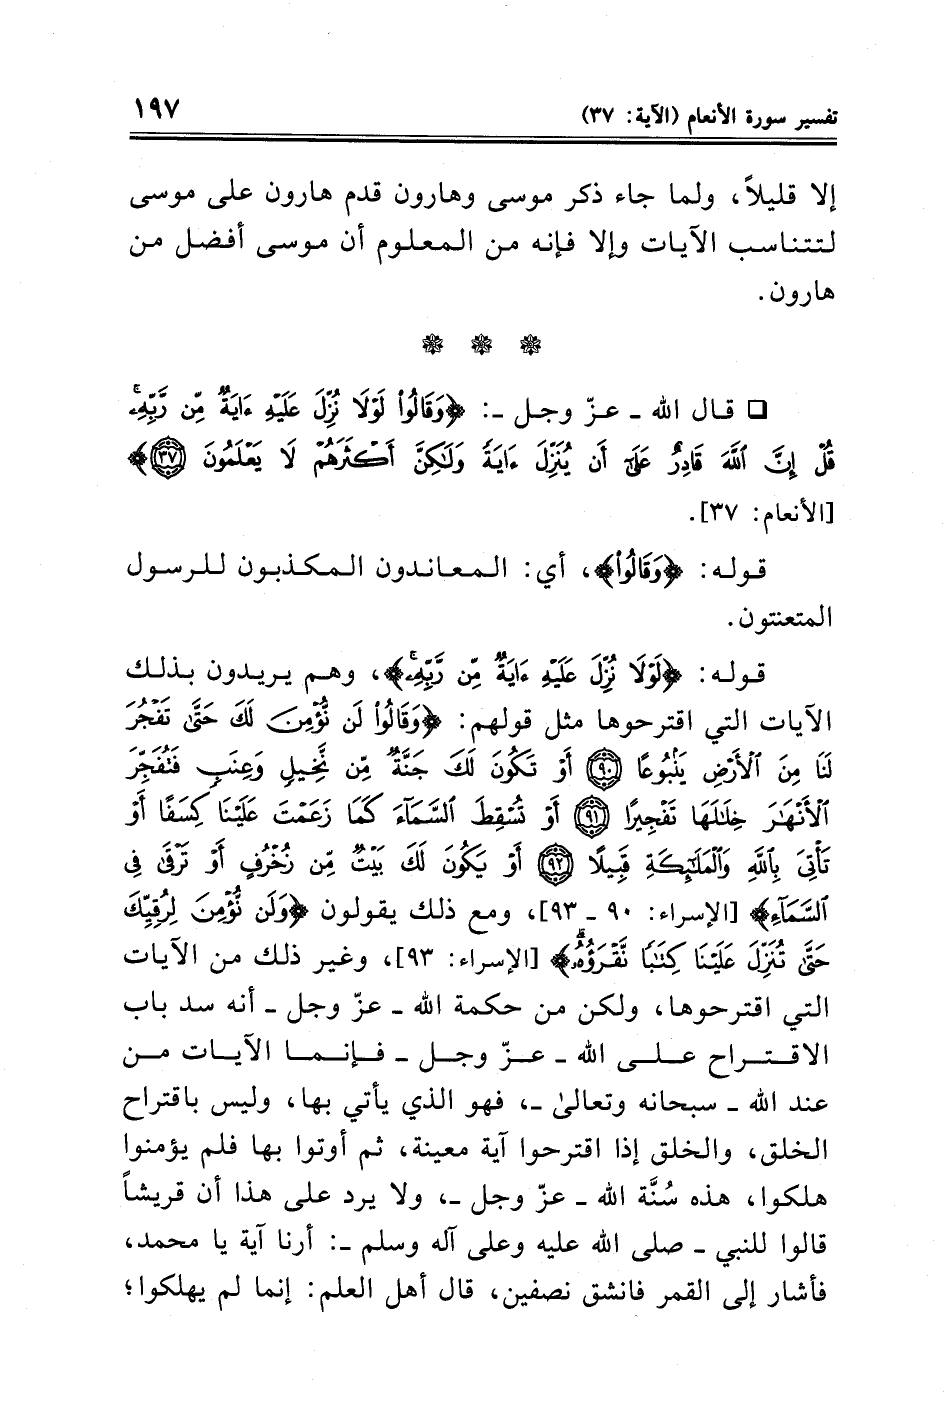 تفسير سورة الأنعام (الآية: ٣٧) ١٩٧
إلا قليلاً، ولما جاء ذكر موسى وهارون قدم هارون على موسى
لتتناسب الآيات وإلا فإنه من المعلوم أن موسى أفضل من
هارون.
❊ ❊ ❊
❏ قال الله ـ عزّ وجل ـ: ﴿وَقَالُواْ لَوْلَا نُزِّلَ عَلَيْهِ ءَايَةٌ مِّن رَّبِّهِۦۚ
قُلْ إِنَّ ٱللَّهَ قَادِرٌ عَلَىٰٓ أَن يُنَزِّلَ ءَايَةً وَلَٰكِنَّ أَكْثَرَهُمْ لَا يَعْلَمُونَ ٣٧﴾
[الأنعام: ٣٧].
قوله: ﴿وَقَالُواْ﴾، أي: المعاندون المكذبون للرسول
المتعنتون.
قوله: ﴿لَوْلَا نُزِّلَ عَلَيْهِ ءَايَةٌ مِّن رَّبِّهِۦۚ﴾، وهم يريدون بذلك
الآيات التي اقترحوها مثل قولهم: ﴿وَقَالُواْ لَن نُّؤْمِنَ لَكَ حَتَّىٰ تَفْجُرَ
لَنَا مِنَ ٱلْأَرْضِ يَنۢبُوعًا ٩٠ أَوْ تَكُونَ لَكَ جَنَّةٌ مِّن نَّخِيلٍ وَعِنَبٍ فَتُفَجِّرَ
ٱلْأَنْهَٰرَ خِلَٰلَهَا تَفْجِيرًا ٩١ أَوْ تُسْقِطَ ٱلسَّمَآءَ كَمَا زَعَمْتَ عَلَيْنَا كِسَفًا أَوْ
تَأْتِىَ بِٱللَّهِ وَٱلْمَلَٰٓئِكَةِ قَبِيلًا ٩٢ أَوْ يَكُونَ لَكَ بَيْتٌ مِّن زُخْرُفٍ أَوْ تَرْقَىٰ فِى
ٱلسَّمَآءِ﴾ [الإسراء: ٩٠ ـ ٩٣]، ومع ذلك يقولون ﴿وَلَن نُّؤْمِنَ لِرُقِيِّكَ
حَتَّىٰ تُنَزِّلَ عَلَيْنَا كِتَٰبًا نَّقْرَؤُهُۥۗ﴾ [الإسراء: ٩٣]، وغير ذلك من الآيات
التي اقترحوها، ولكن من حكمة الله ـ عزّ وجل ـ أنه سد باب
الاقتراح على الله ـ عزّ وجل ـ فإنما الآيات من
عند الله ـ سبحانه وتعالىٰ ـ، فهو الذي يأتي بها، وليس باقتراح
الخلق، والخلق إذا اقترحوا آية معينة، ثم أوتوا بها فلم يؤمنوا
هلكوا، هذه سُنَّة الله ـ عزّ وجل ـ، ولا يرد على هذا أن قريشاً
قالوا للنبي ـ صلى الله عليه وعلى آله وسلم ـ: أرنا آية يا محمد،
فأشار إلى القمر فانشق نصفين، قال أهل العلم: إنما لم يهلكوا؛